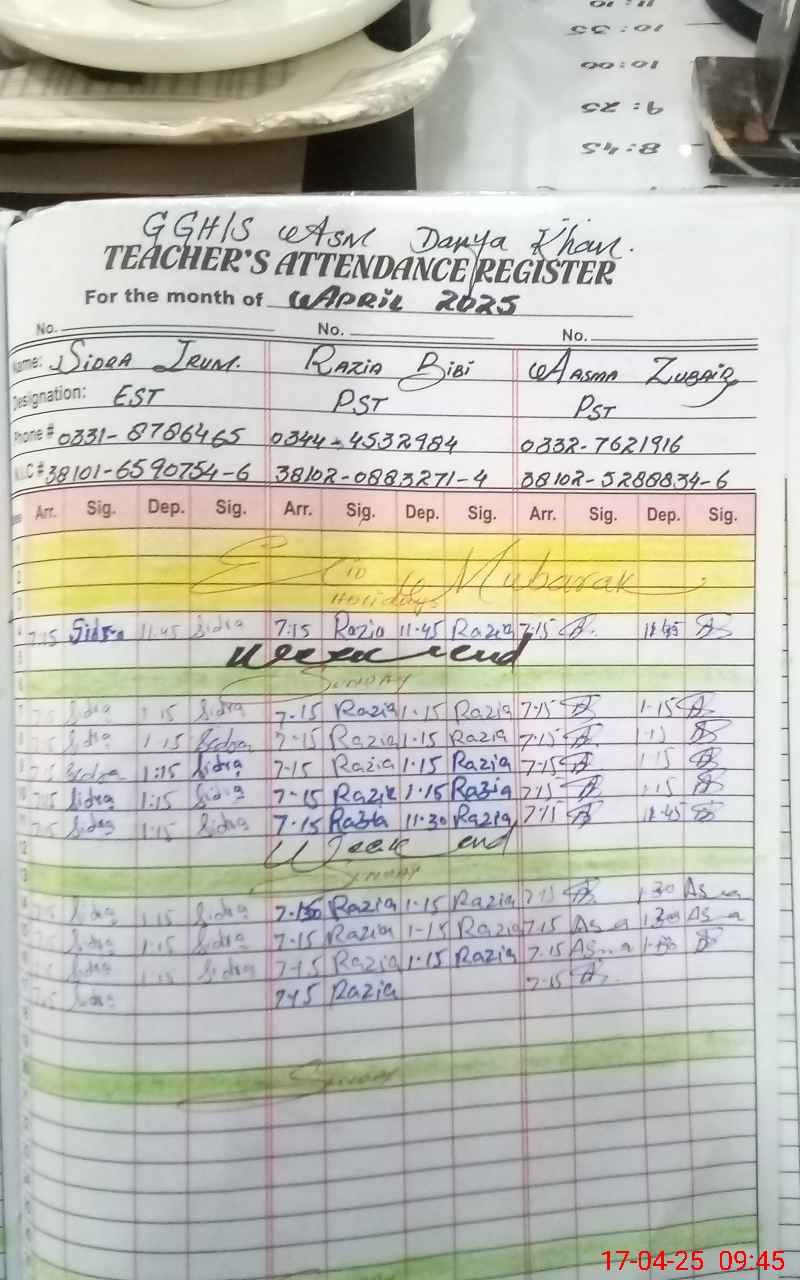 11:10
10:35
10:00
9:25
8:45
GGHS Danya Khan.
TEACHER'S ATTENDANCE REGISTER
For the month of APRIL 2025
No. No. No.
Name: SIDRA IRUM. RAZIA BIBI AASMA ZUBAIR
Designation: EST PST PST
Phone # 0331-8786465 0344-4532984 0332-7621916
38101-6590754-6 38102-0883271-4 38102-5288834-6
Arr. Sig. Dep. Sig. Arr. Sig. Dep. Sig. Arr. Sig. Dep. Sig.
1
2 Eid Mubarak
3 Holidays
4 7:15 Sidra 11:45 Sidra 7:15 Razia 11-45 Razia 7-15 11:45
5 Week end
6 SUNDAY
7 7:15 Sidra 1:15 Sidra 7-15 Razia 1-15 Razia 7-15 1-15
8 7:15 Sidra 1:15 Sidra 7-15 Razia 1-15 Razia 7-15 1-15
9 7:15 Sidra 1:15 Sidra 7-15 Razia 1-15 Razia 7-15 1-15
10 7:15 Sidra 1:15 Sidra 7-15 Razia 1-15 Razia 7-15 1-15
11 7:15 Sidra 1:15 Sidra 7-15 Razia 11-30 Razia 7-15 11-45
12 Week end
13 Sunday
14 7:15 Sidra 1:15 Sidra Razia 1-15 Razia 7-15 1-30
7:15 Sidra 1:15 Sidra 7-15 Razia 1-15 Razia 7-15 1-30
7:15 Sidra 1:15 Sidra 7-15 Razia 1-15 Razia 7-15
7:15 Sidra 7-15 Razia 7-15
Sunday
17-04-25 09:45